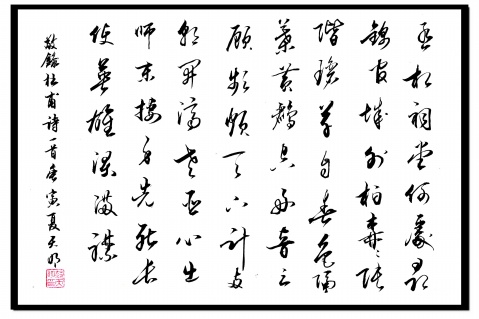 丞相祠堂何處尋
錦官城外柏森〻映
階碧草自春色隔
葉黃鸝空好音三
顧頻煩天下計兩
朝開濟老臣心出
師未捷身先死長
使英雄淚滿襟
敬錄杜甫詩一首庚寅夏天明